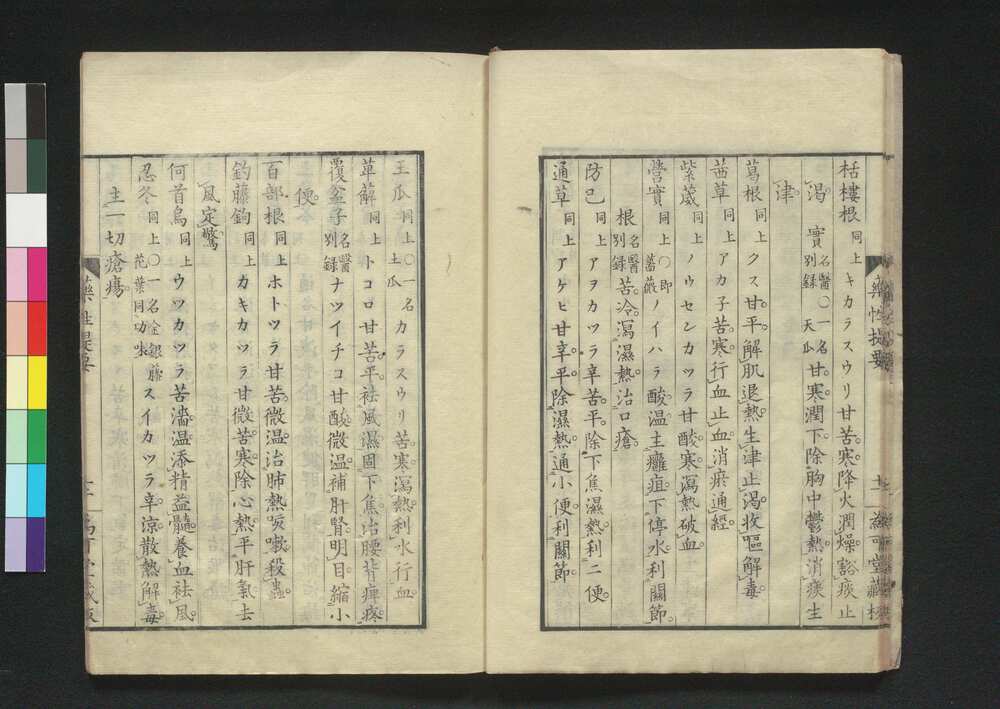 栝樓根同上キカラスウリ甘苦。寒。降火潤燥。豁痰止
渇 實名醫別錄〇一名天瓜甘。寒。潤下。除胸中鬱熱消痰生
津。
葛根同上クス甘。平。解肌退熱生津止渇。收嘔。解毒。
茜草同上アカ子苦。寒。行血止血。消瘀通經。
紫葳同上ノウセンカツラ甘酸。寒。瀉熱破血。
營實同上〇即薔薇ノイハラ酸溫。主癰疽。下停水。利關節。
根名醫別錄苦。冷。瀉濕熱。治口瘡。
防已同上アヲカツラ辛苦。平。除下焦濕熱。利二便。
通草同上アケヒ甘辛。平。除濕熱。通小便。利關節。
藥性提要 十一 爲可堂藏梓
王瓜同上〇一名土瓜カラスウリ苦。寒。瀉熱利水行血。
萆薢同上トコロ甘苦。平。祛風濕。固下焦。治腰背痺疼。
覆盆子名醫別錄ナツイチコ甘酸。微溫。補肝腎。明目。縮小
便。
百部根同上ホトツラ甘苦。微溫。治肺熱咳嗽。殺蟲。
釣藤鉤同上カキカツラ甘微苦。寒。除心熱。平肝氣。去
風定驚。
何首烏同上ウツカツラ苦濇。溫。添精益髓。養血祛風。
忍冬同上〇一名金銀藤花葉同功味スイカツラ辛。涼。散熱解毒。
主一切瘡瘍。
藥性提要